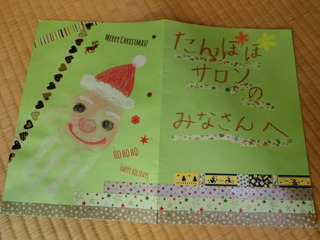 MERRY CHRISTMAS!
HO HO HO
HAPPY HOLIDAYS
たんぽぽ
サロン
の
みなさんへ